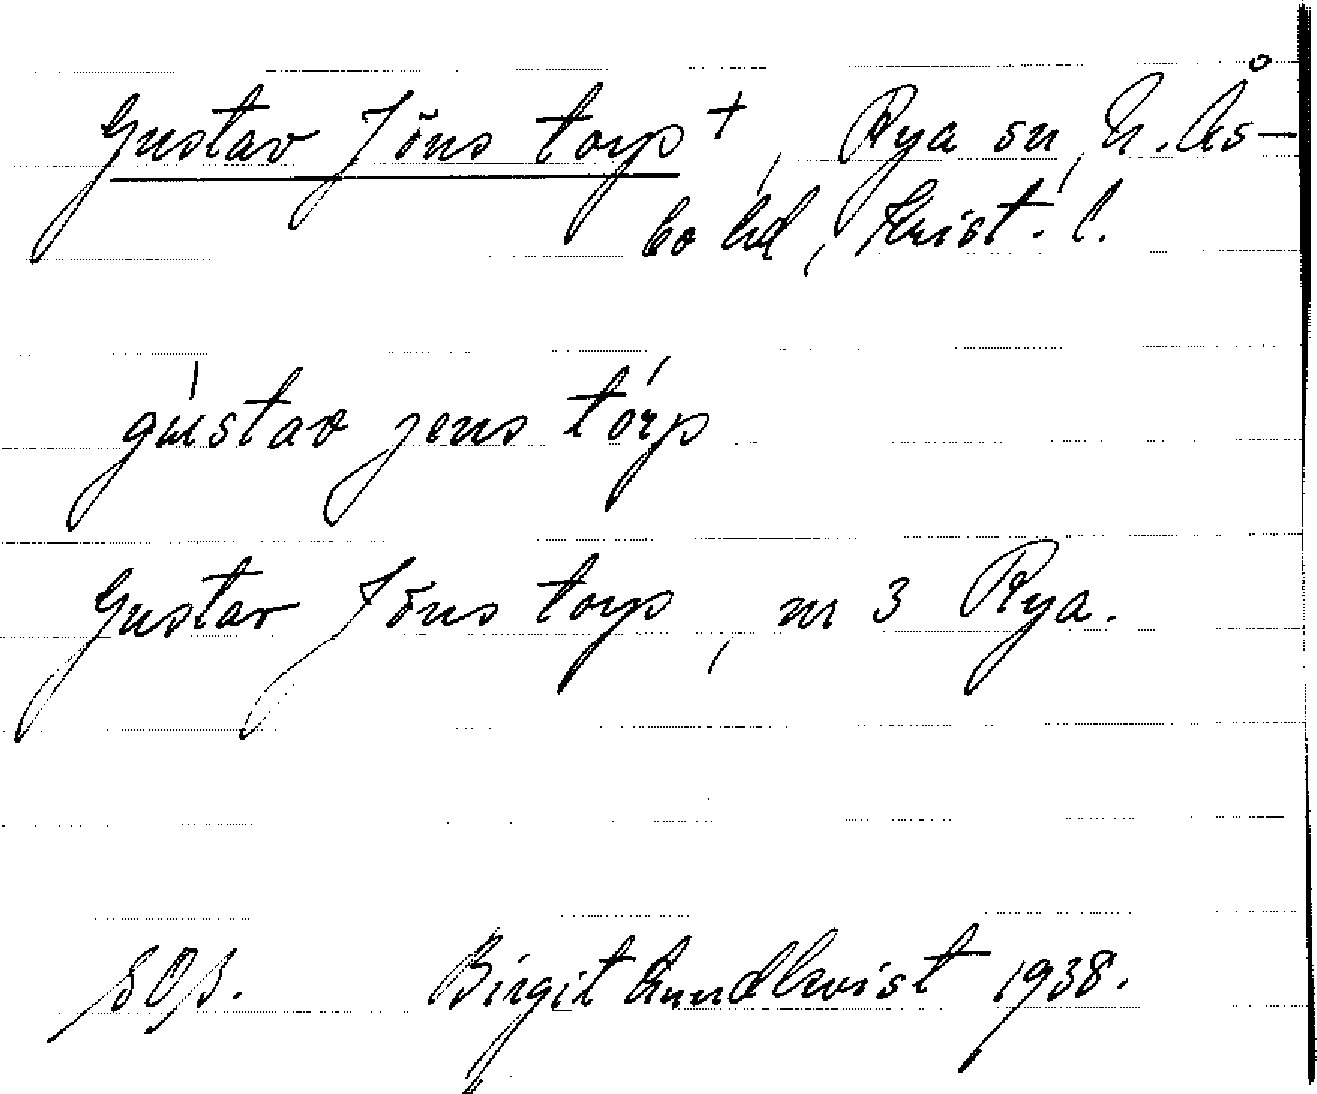 Gustav Jöns torp +, Rya sn, N. Ås-
bo hd, Krist. l.
gustav jens torp
Gustav Jöns torp, nr 3 Rya.
Birgit Lundkvist 1938.